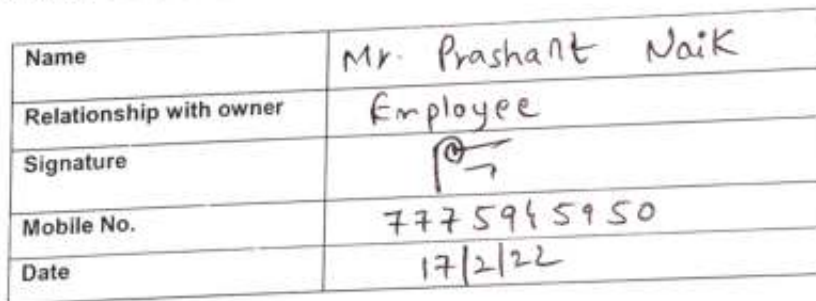 Name Mr. Prashant Naik
Relationship with owner Employee
Signature
Mobile No. 7775945950
Date 17/2/22